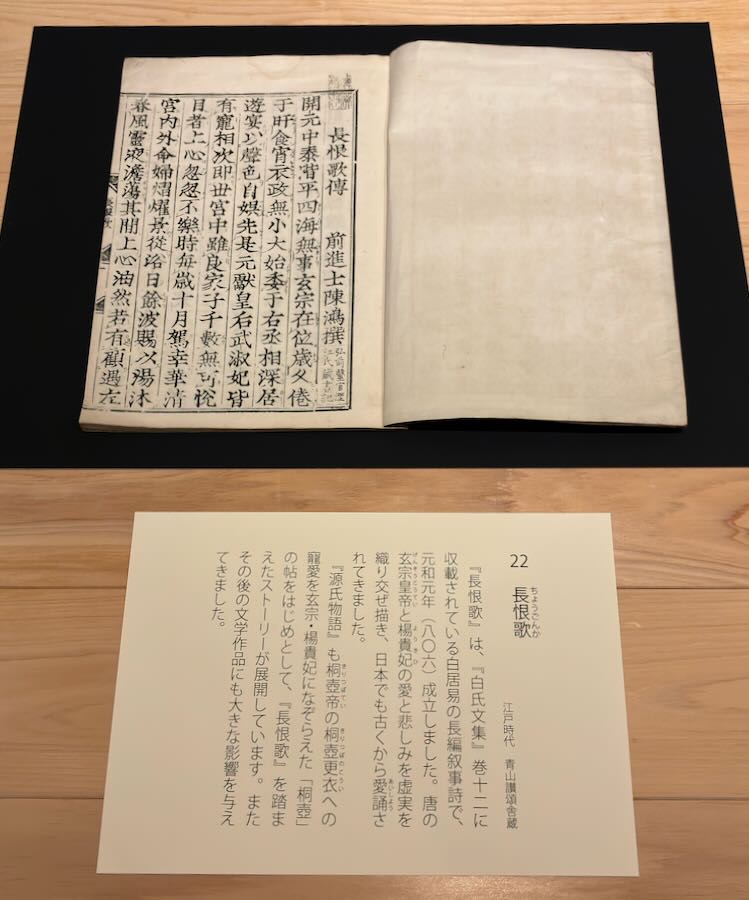 長恨歌傳　前進士陳鴻撰
弘前醫官澀
江氏藏書記
開元中泰階平四海無事玄宗在位歲久倦
于旰食宵衣政無小大始委于右丞相深居
遊宴以聲色自娛先是元獻皇后武淑妃皆
有寵相次即世宮中雖良家子千數無可悅
目者上心忽忽不樂時每歲十月駕幸華清
宮内外命婦熠燿景從浴日餘波賜以湯沐
春風靈液澹蕩其間上心油然若有顧遇左
22　長恨歌
ちょうごんか
江戸時代　青山讃頌舎蔵
『長恨歌』は、『白氏文集』巻十二に
収載されている白居易の長編叙事詩で、
元和元年（八〇六）成立しました。唐の
げんそうこうてい　ようきひ
玄宗皇帝と楊貴妃の愛と悲しみを虚実を
織り交ぜ描き、日本でも古くから愛誦さ
あいしょう
れてきました。
きりつぼてい　きりつぼのこうい
『源氏物語』も桐壺帝の桐壺更衣への
寵愛を玄宗・楊貴妃になぞらえた「桐壺」
の帖をはじめとして、『長恨歌』を踏ま
えたストーリーが展開しています。また
その後の文学作品にも大きな影響を与え
てきました。